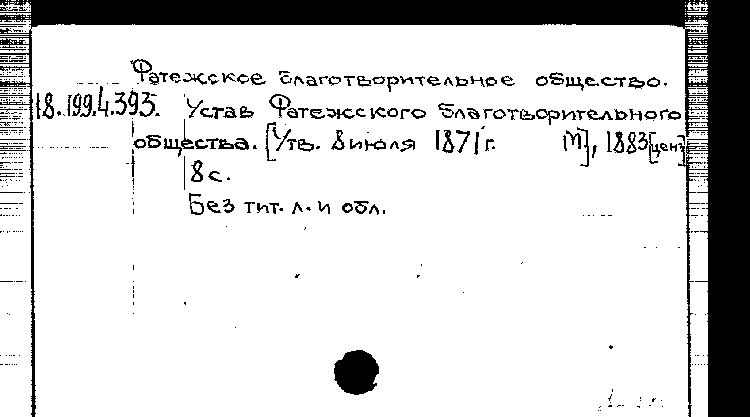 Фатежское благотворительное общество.
18.199.4.393. Устав Фатежского благотворительного
общества. [Утв. 8 июля 1871 г. М], 1883 [ценз]
8 с.
Без тит. л. и обл.